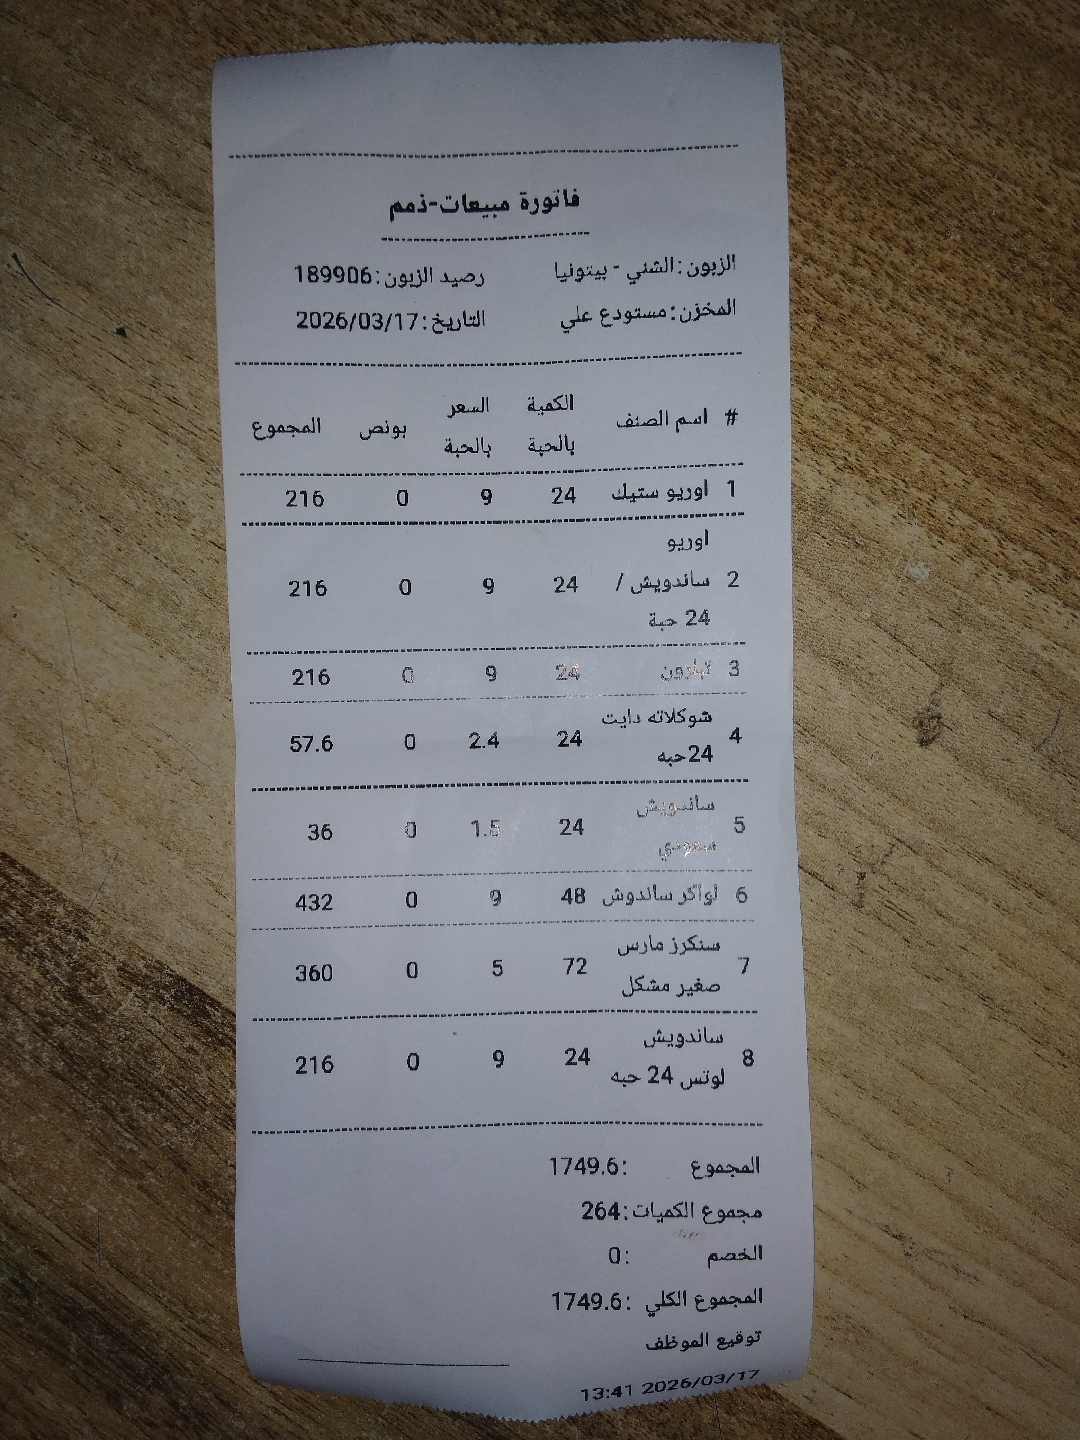 فاتورة مبيعات-ذمم
الزبون:الشني - بيتونيا رصيد الزبون:189906
المخزن:مستودع علي التاريخ:2026/03/17
# اسم الصنف الكمية بالحبة السعر بالحبة بونص المجموع
1 اوريو ستيك 24 9 0 216
اوريو
2 ساندويش / 24 9 0 216
24 حبة
3 تبارون 24 9 0 216
شوكلاته دايت
4 24 2.4 0 57.6
24حبه
ساندويش
5 24 1.5 0 36
سعودي
6 لواكر ساندوش 48 9 0 432
سنكرز مارس
7 72 5 0 360
صغير مشكل
ساندويش
8 24 9 0 216
لوتس 24 حبه
المجموع :1749.6
مجموع الكميات:264
الخصم :0
المجموع الكلي :1749.6
توقيع الموظف
13:41 2026/03/17